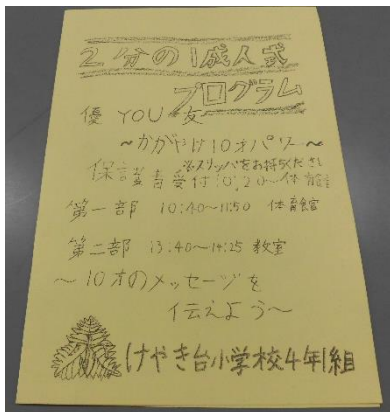 2分の1成人式
プログラム
優 YOU 友
～かがやけ10才パワー～
※スリッパをお持ちください
保護者受付10:20～体育館
第一部 10:40～11:50 体育館
第二部 13:40～14:25 教室
～10才のメッセージを
伝えよう～
けやき台小学校4年1組